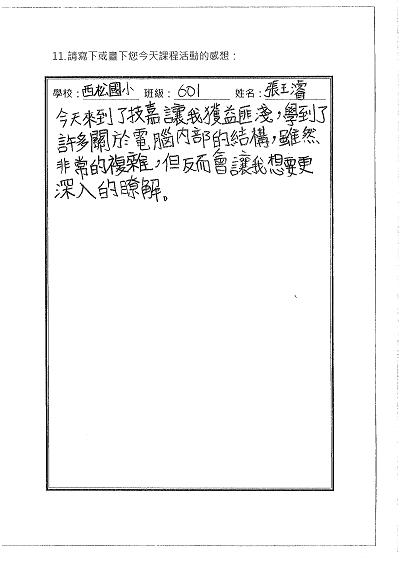 11.請寫下或畫下您今天課程活動的感想：
學校：西松國小 班級：601 姓名：張王濬
今天來到了技嘉讓我獲益匪淺，學到了
許多關於電腦內部的結構，雖然
非常的複雜，但反而會讓我想要更
深入的瞭解。